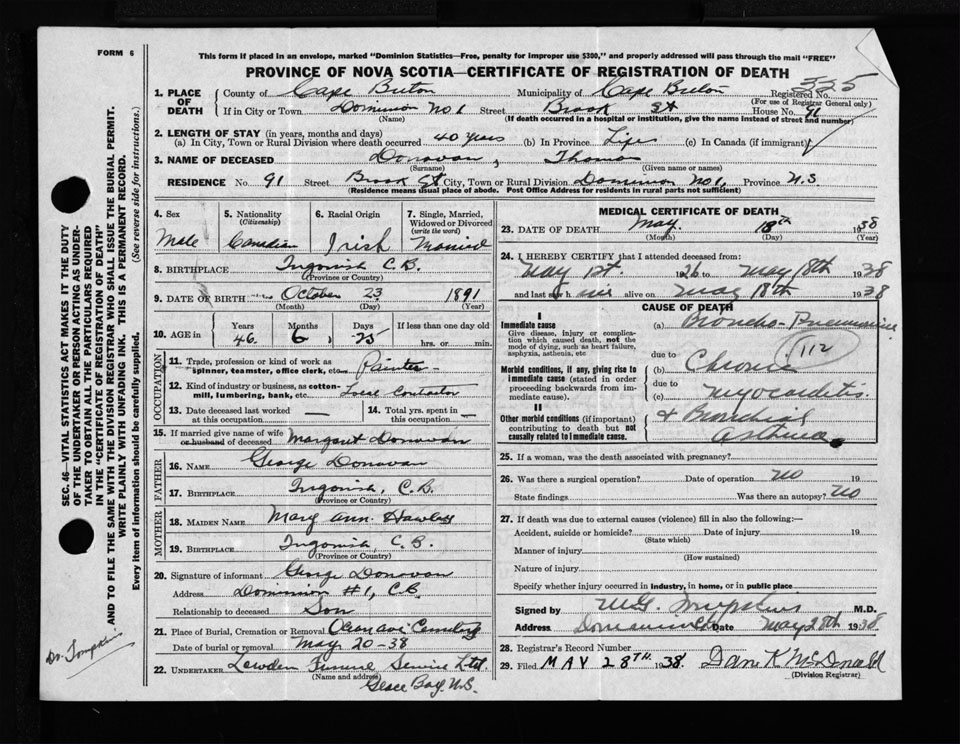 FORM 6
This form if placed in an envelope, marked "Dominion Statistics—Free, penalty for improper use $300," and properly addressed will pass through the mail "FREE"
PROVINCE OF NOVA SCOTIA—CERTIFICATE OF REGISTRATION OF DEATH
325
1. PLACE OF DEATH
County of Cape Breton Municipality of Cape Breton Registered No.
(For use of Registrar General only)
If in City or Town Dominion No 1 Street Brook St House No. 91
(Name) (If death occurred in a hospital or institution, give the name instead of street and number)
2. LENGTH OF STAY (in years, months and days)
(a) In City, Town or Rural Division where death occurred 40 years (b) In Province Life (c) In Canada (if immigrant)
3. NAME OF DECEASED Donovan, Thomas
(Surname) (Given name or names)
RESIDENCE No. 91 Street Brook St City, Town or Rural Division Dominion No 1, Province N.S.
(Residence means usual place of abode. Post Office Address for residents in rural parts not sufficient)
4. Sex Male
5. Nationality (Citizenship) Canadian
6. Racial Origin Irish
7. Single, Married, Widowed or Divorced (write the word) Married
8. BIRTHPLACE Ingonish C.B.
(Province or Country)
9. DATE OF BIRTH October 23 1891
(Month) (Day) (Year)
10. AGE in Years 46 Months 6 Days 25 If less than one day old
hrs. or min.
OCCUPATION
11. Trade, profession or kind of work as spinner, teamster, office clerk, etc. Painter
12. Kind of industry or business, as cotton-mill, lumbering, bank, etc.
13. Date deceased last worked at this occupation — 14. Total yrs. spent in this occupation —
15. If married give name of wife or husband of deceased Margaret Donovan
FATHER
16. NAME George Donovan
17. BIRTHPLACE Ingonish, C.B.
(Province or Country)
MOTHER
18. MAIDEN NAME Mary Ann
19. BIRTHPLACE Ingonish, C.B.
(Province or Country)
20. Signature of informant George Donovan
Address Dominion #1, C.B.
Relationship to deceased Son
21. Place of Burial, Cremation or Removal Cemetery
Date of burial or removal May 20-38
22. UNDERTAKER Service Ltd
(Name and address)
Glace Bay N.S.
MEDICAL CERTIFICATE OF DEATH
23. DATE OF DEATH May 18th 1938
(Month) (Day) (Year)
24. I HEREBY CERTIFY that I attended deceased from:
May 1st 1936 to May 18th 1938
and last saw him alive on May 18th 1938
CAUSE OF DEATH
I
Immediate cause (a) Broncho-Pneumonia
Give disease, injury or complication which caused death, not the mode of dying, such as heart failure, asphyxia, asthenia, etc
112
due to
Morbid conditions, if any, giving rise to immediate cause (stated in order proceeding backwards from immediate cause). (b) Chronic
due to
(c) myocarditis
II
Other morbid conditions (if important) contributing to death but not causally related to immediate cause. & Bronchial
Asthma
25. If a woman, was the death associated with pregnancy?
26. Was there a surgical operation? Date of operation no 19
State findings Was there an autopsy? no
27. If death was due to external causes (violence) fill in also the following:—
Accident, suicide or homicide? Date of injury 19
(State which)
Manner of injury
(How sustained)
Nature of injury
Specify whether injury occurred in industry, in home, or in public place
Signed by M.D.
Address Dominion Date May 28th 1938
28. Registrar's Record Number
29. Filed MAY 28TH. 1938. Dan K McDonald
(Division Registrar)
SEC. 46—VITAL STATISTICS ACT MAKES IT THE DUTY OF THE UNDERTAKER OR PERSON ACTING AS UNDERTAKER TO OBTAIN ALL THE PARTICULARS REQUIRED IN THE "CERTIFICATE OF REGISTRATION OF DEATH"
AND TO FILE THE SAME WITH THE DIVISION REGISTRAR WHO SHALL ISSUE THE BURIAL PERMIT.
WRITE PLAINLY WITH UNFADING INK. THIS IS A PERMANENT RECORD.
Every item of information should be carefully supplied. (See reverse side for instructions.)
Dr. Tompkins